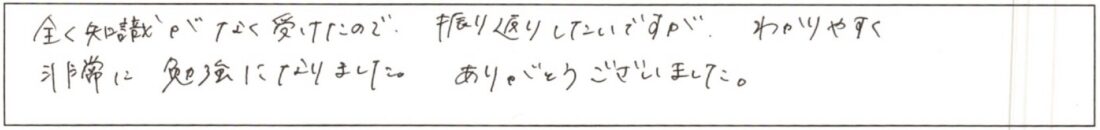 全く知識がなく受けたので、振り返りしたいですが、わかりやすく
非常に勉強になりました。ありがとうございました。